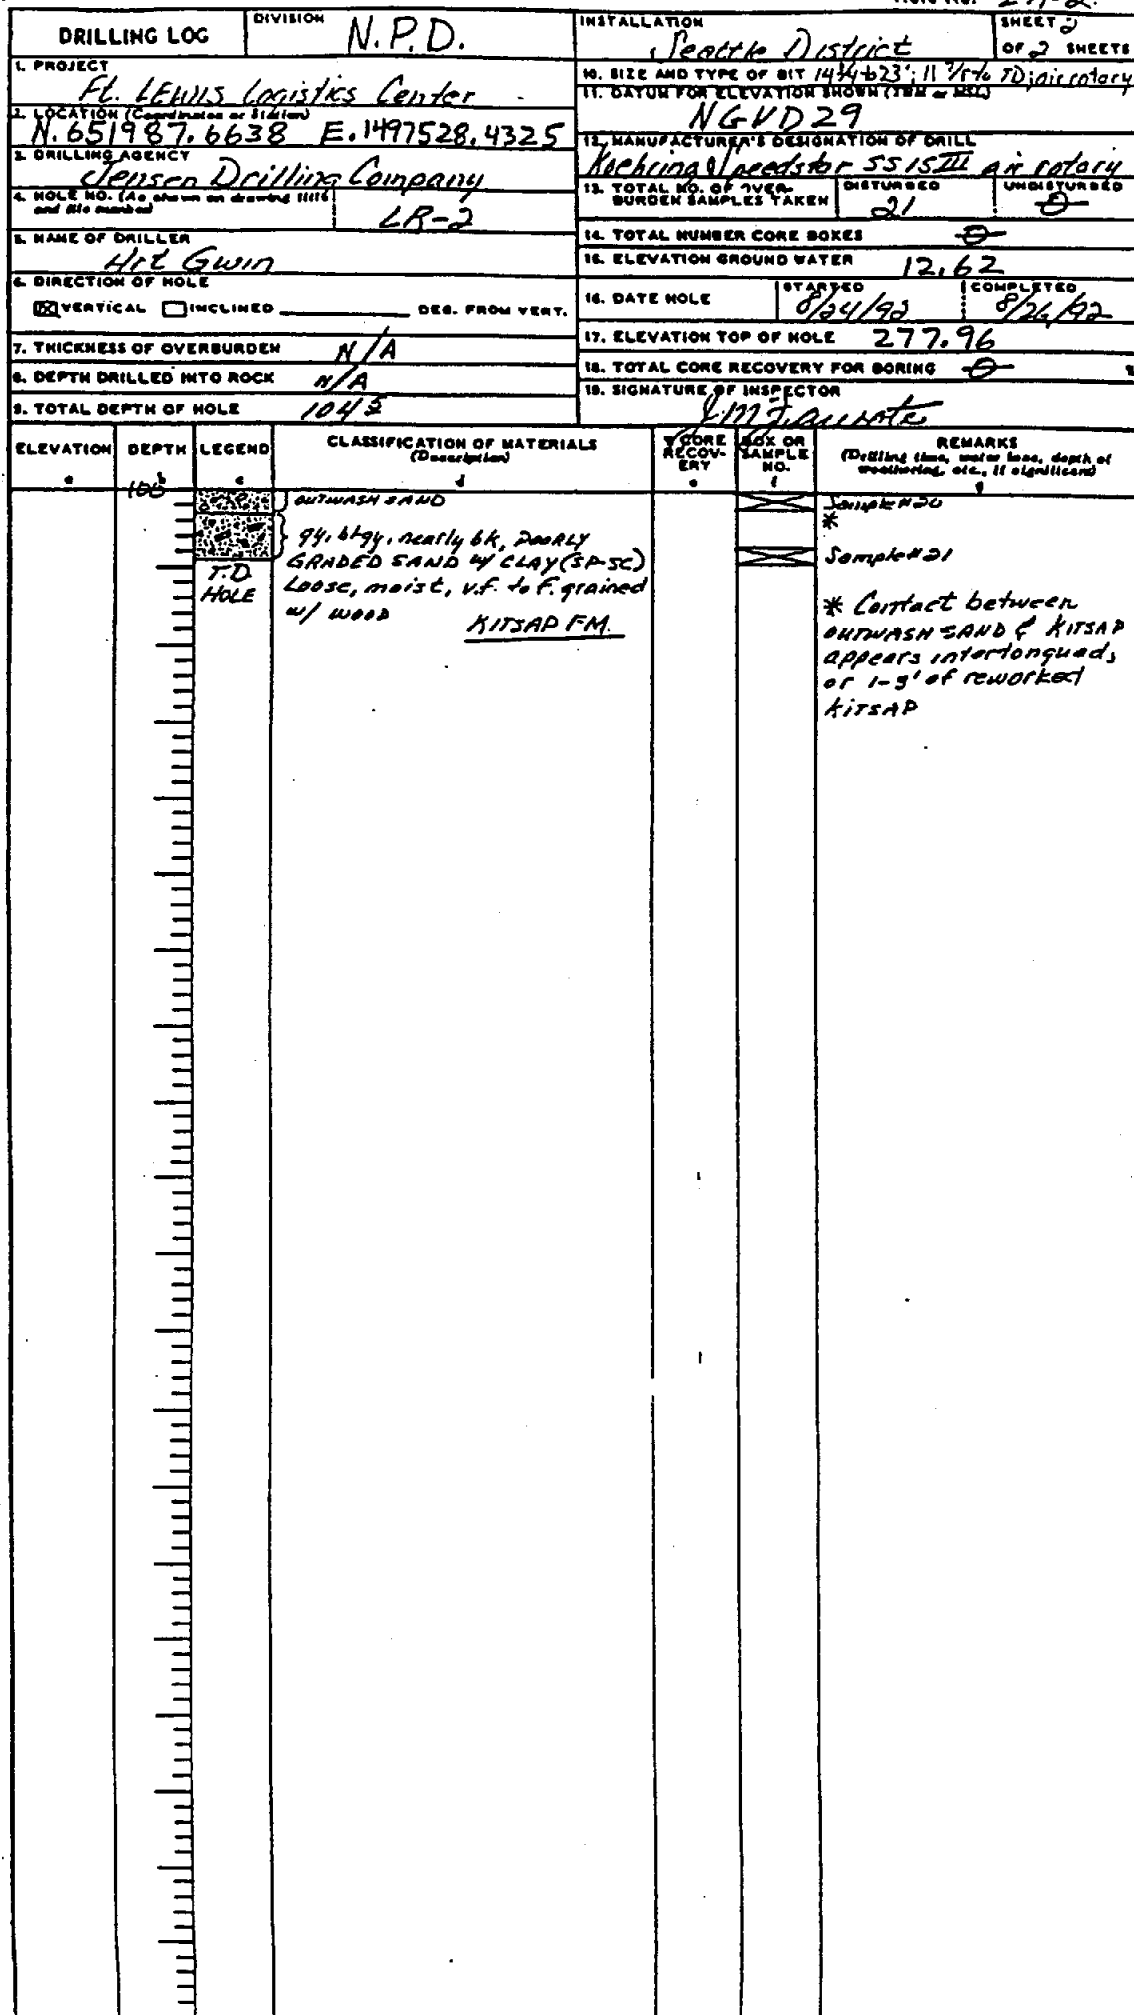 Hole No. LR-2
DRILLING LOG
DIVISION
N.P.D.
INSTALLATION
Seattle District
SHEET 2
OF 2 SHEETS
1. PROJECT
Ft. LEWIS Logistics Center
2. LOCATION (Coordinates or Station)
N. 651987.6638 E. 1497528.4325
3. DRILLING AGENCY
Jensen Drilling Company
4. HOLE NO. (As shown on drawing title
and file number)
LR-2
5. NAME OF DRILLER
Art Gwin
6. DIRECTION OF HOLE
☒ VERTICAL ☐ INCLINED ______ DEG. FROM VERT.
7. THICKNESS OF OVERBURDEN N/A
8. DEPTH DRILLED INTO ROCK N/A
9. TOTAL DEPTH OF HOLE 104.5
10. SIZE AND TYPE OF BIT 14 3/4 to 23'; 11 7/8 to TD; air rotary
11. DATUM FOR ELEVATION SHOWN (TBM or MSL)
NGVD29
12. MANUFACTURER'S DESIGNATION OF DRILL
Koehring Speedstar SS15III air rotary
13. TOTAL NO. OF OVER-
BURDEN SAMPLES TAKEN
DISTURBED
21
UNDISTURBED
0
14. TOTAL NUMBER CORE BOXES 0
15. ELEVATION GROUND WATER 12.62
16. DATE HOLE
STARTED
8/24/92
COMPLETED
8/26/92
17. ELEVATION TOP OF HOLE 277.96
18. TOTAL CORE RECOVERY FOR BORING 0
19. SIGNATURE OF INSPECTOR
ELEVATION
a
DEPTH
b
LEGEND
c
CLASSIFICATION OF MATERIALS
(Description)
d
% CORE
RECOV-
ERY
e
BOX OR
SAMPLE
NO.
f
REMARKS
(Drilling time, water loss, depth of
weathering, etc., if significant)
g
100
OUTWASH SAND
gy, bt gy, nearly bk, POORLY
GRADED SAND w/ CLAY (SP-SC)
Loose, moist, v.f. to f. grained
w/ wood
KITSAP FM.
T.D.
HOLE
Sample #20
*
Sample #21
* Contact between
OUTWASH SAND & KITSAP
appears intertongued,
or 1-3' of reworked
KITSAP